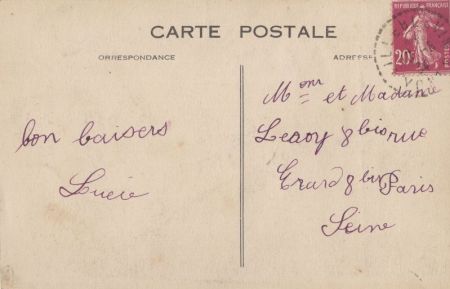 CARTE POSTALE
ORRESPONDANCE
ADRESSE
RÉPUBLIQUE FRANÇAISE
20c
POSTES
bon baisers
Lucie
Monr et Madame
Leroy 8 bis rue
Erard 8 bis Paris
Seine